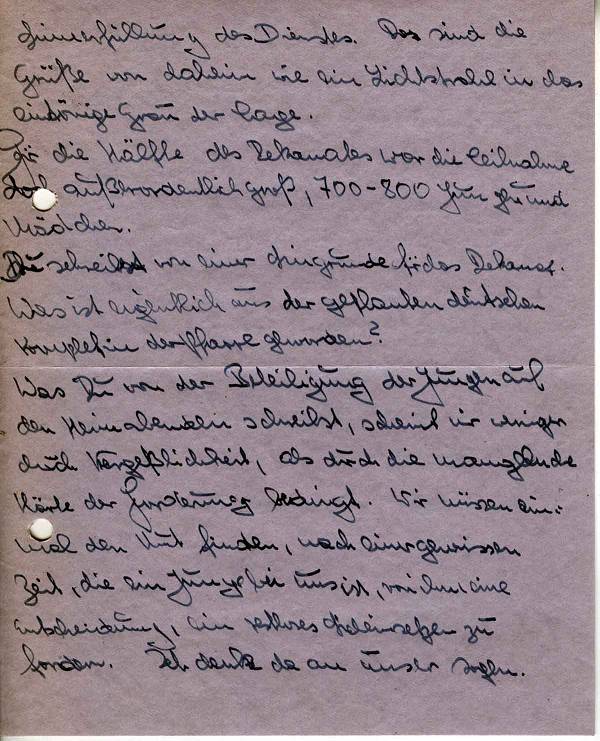 des Dienstes. Das sind die
Grüße von daheim wie ein Lichtstrahl in das
eintönige Grau der Tage.
Für die Hälfte des Dekanates war die Teilnahme
doch außerordentlich groß, 700-800 Jungen und
Mädchen.
Du schreibst von einer für das Dekanat.
Was ist eigentlich aus der geplanten deutschen
Komplet in der Pfarre geworden?
Was Du von der Beteiligung der Jungen auf
den Heimabenden schreibst, scheint mir weniger
durch Vergeßlichkeit, als durch die mangelnde
Härte der Forderung bedingt. Wir müssen ein-
mal den Mut finden, nach einer gewissen
Zeit, die ein Junge bei uns ist, von ihm eine
Entscheidung, ein zu
fordern. Ich denke da an unser